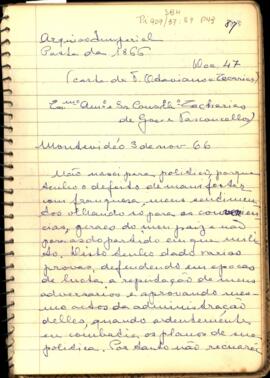 SBH
Pi 209/37:89 P43
87
Arquivo Imperial
Pasta de 1866
Doc. 47
(carta de F. Otaviano a Zacarias)
Exmº Amº e Sr Consº Zacharias
de Goes e Vasconcellos
Montevidéo 3 de nov. 66
Não nasci para politico, porque
tenho o defeito de manifestar
com franqueza, meus sentimen
tos olhando só para as conveni
encias, geraes do meu paiz e não
geraes do partido em que mili
to. Disto tenho dado varias
provas, defendendo em epocas
de lucta, a reputação de meus
adversarios e aprovando mes-
mo actos da administração
delles, quando ardentemente
eu combatia os planos de sua
politica. Portanto não recuarei